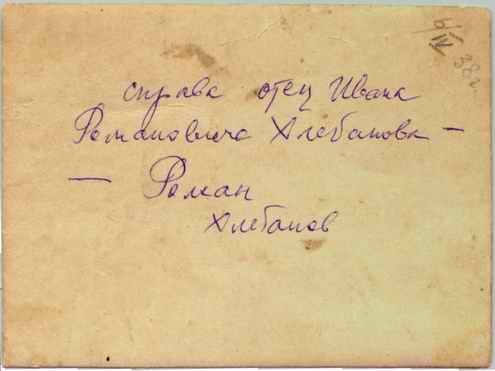 справа отец Ивана
Романовича Хлебанова —
— Роман
Хлебанов
38г.